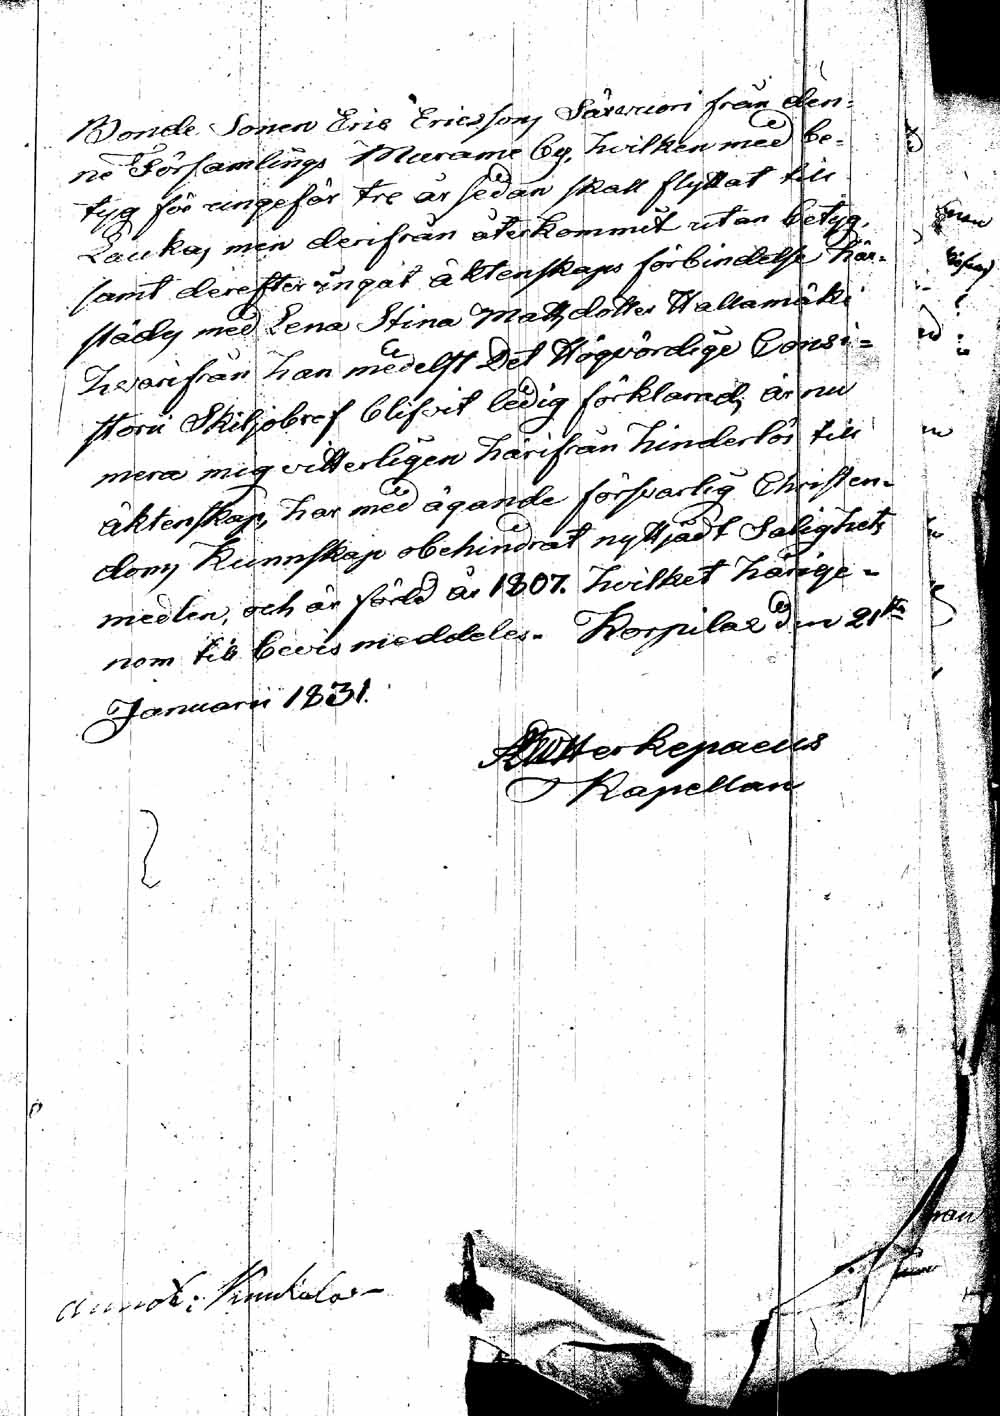 Bonde Sonen Eric Ericsson Särvuori från den-
ne Församlings Murame by, hvilken med be-
tyg för ungefär tre år sedan skall flyttat till
Lauka, men derifrån återkommit utan betyg,
samt derefter ingåt äktenskaps förbindelse här-
städes med Lena Stina Mattsdotter Hallamäki
hvarifrån han medelst Det Högvördige Consi-
storii Skiljobref blifvit ledig förklarad, är nu
mera mig vitterligen härifrån hinderlös till
äktenskap, har med ägande försvarlig Christen-
doms Kunnskap obehindrat nyttjadt Salighets
medlen, och är född år 1807. hvilket härige-
nom till bevis meddeles. Korpilax den 21sta
Januarii 1831.
Kapellan
annot: